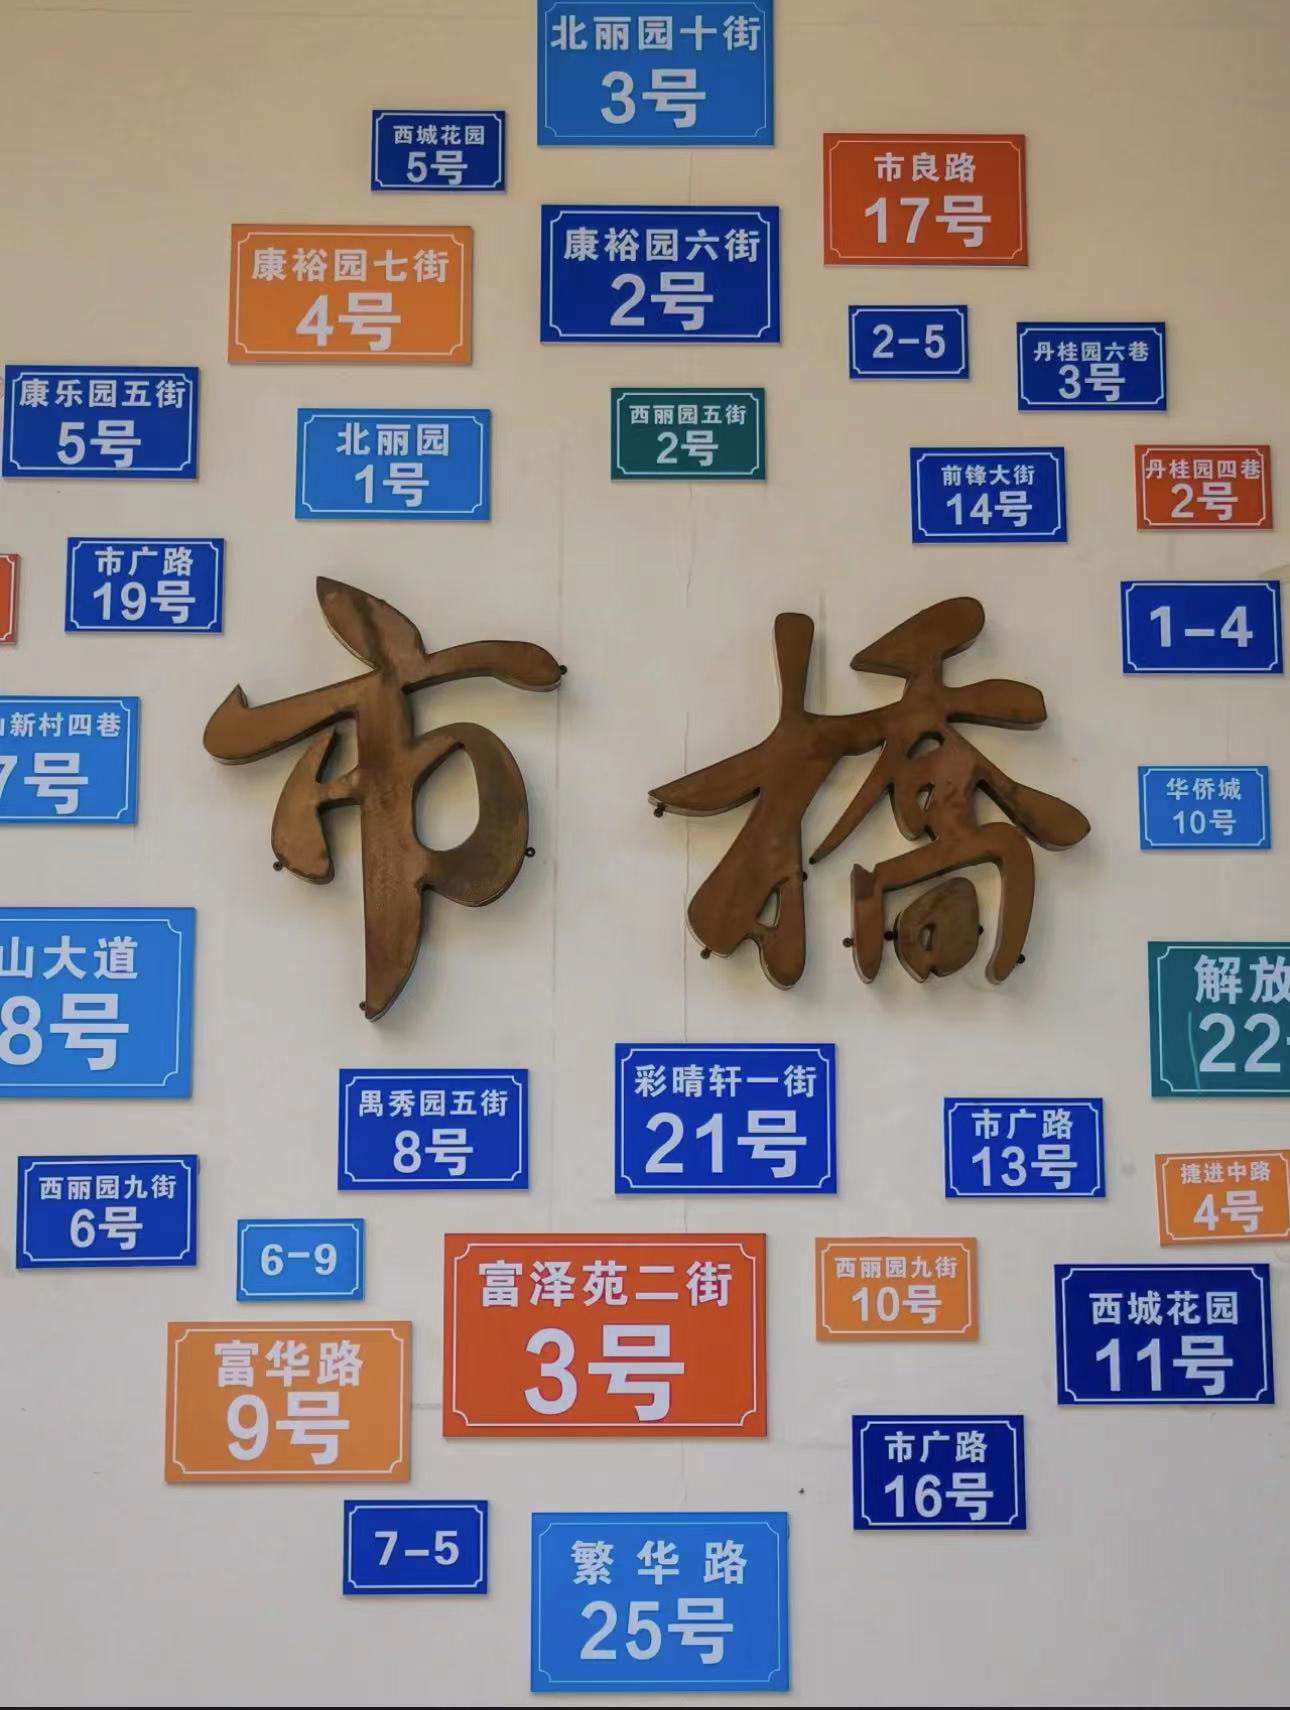 北丽园十街
3号
西城花园
5号
市良路
17号
康裕园七街
4号
康裕园六街
2号
2-5
丹桂园六巷
3号
康乐园五街
5号
北丽园
1号
西丽园五街
2号
前锋大街
14号
丹桂园四巷
2号
市广路
19号
1-4
市橋
山新村四巷
7号
华侨城
10号
山大道
8号
解放
22
禺秀园五街
8号
彩晴轩一街
21号
市广路
13号
捷进中路
4号
西丽园九街
6号
6-9
富泽苑二街
3号
西丽园九街
10号
西城花园
11号
富华路
9号
市广路
16号
7-5
繁华路
25号